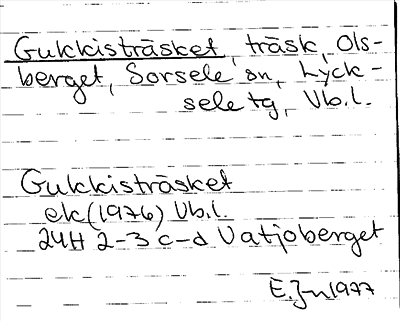 Gukkisträsket, träsk, Ols-
berget, Sorsele sn, Lyck-
sele tg, Vb.l.
Gukkisträsket
ek (1976) Vb.l.
24H 2-3 c-d Vatjoberget
E. J-n 1977